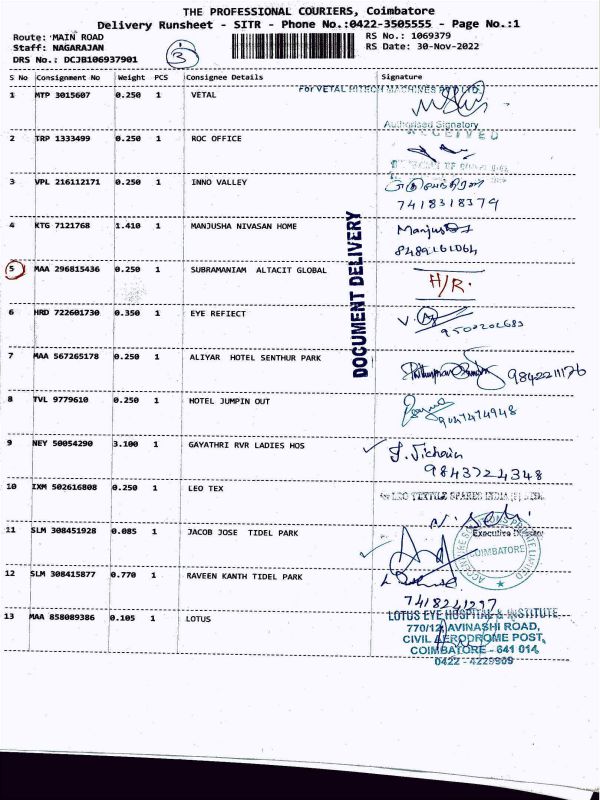 THE PROFESSIONAL COURIERS, Coimbatore
Delivery Runsheet - SITR - Phone No.:0422-3505555 - Page No.:1
Route: MAIN ROAD
Staff: NAGARAJAN
DRS No.: DCJB106937901
3
RS No.: 1069379
RS Date: 30-Nov-2022
S No Consignment No Weight PCS Consignee Details Signature
For VETAL HITECH MACHINES PVT LTD.
1 MTP 3015607 0.250 1 VETAL
Authorised Signatory
RECEIVED
2 TRP 1333499 0.250 1 ROC OFFICE
3 VPL 216112171 0.250 1 INNO VALLEY
7418318379
4 KTG 7121768 1.410 1 MANJUSHA NIVASAN HOME Manjusha
8489161064
5 MAA 296815436 0.250 1 SUBRAMANIAM ALTACIT GLOBAL H/R.
DOCUMENT DELIVERY
6 HRD 722601730 0.350 1 EYE REFIECT
9500202683
7 MAA 567265178 0.250 1 ALIYAR HOTEL SENTHUR PARK 9842211176
8 TVL 9779610 0.250 1 HOTEL JUMPIN OUT
9047474948
9 NEY 50054290 3.100 1 GAYATHRI RVR LADIES HOS
9843724348
10 IXM 502616808 0.250 1 LEO TEX
For LEO TEXTILE SPARES INDIA (P) LTD.
Executive Director
11 SLM 308451928 0.085 1 JACOB JOSE TIDEL PARK
COIMBATORE
12 SLM 308415877 0.770 1 RAVEEN KANTH TIDEL PARK
7418241297
13 MAA 858089386 0.105 1 LOTUS
LOTUS EYE HOSPITAL & INSTITUTE
770/12, AVINASHI ROAD,
CIVIL AERODROME POST,
COIMBATORE - 641 014.
0422 - 4229909